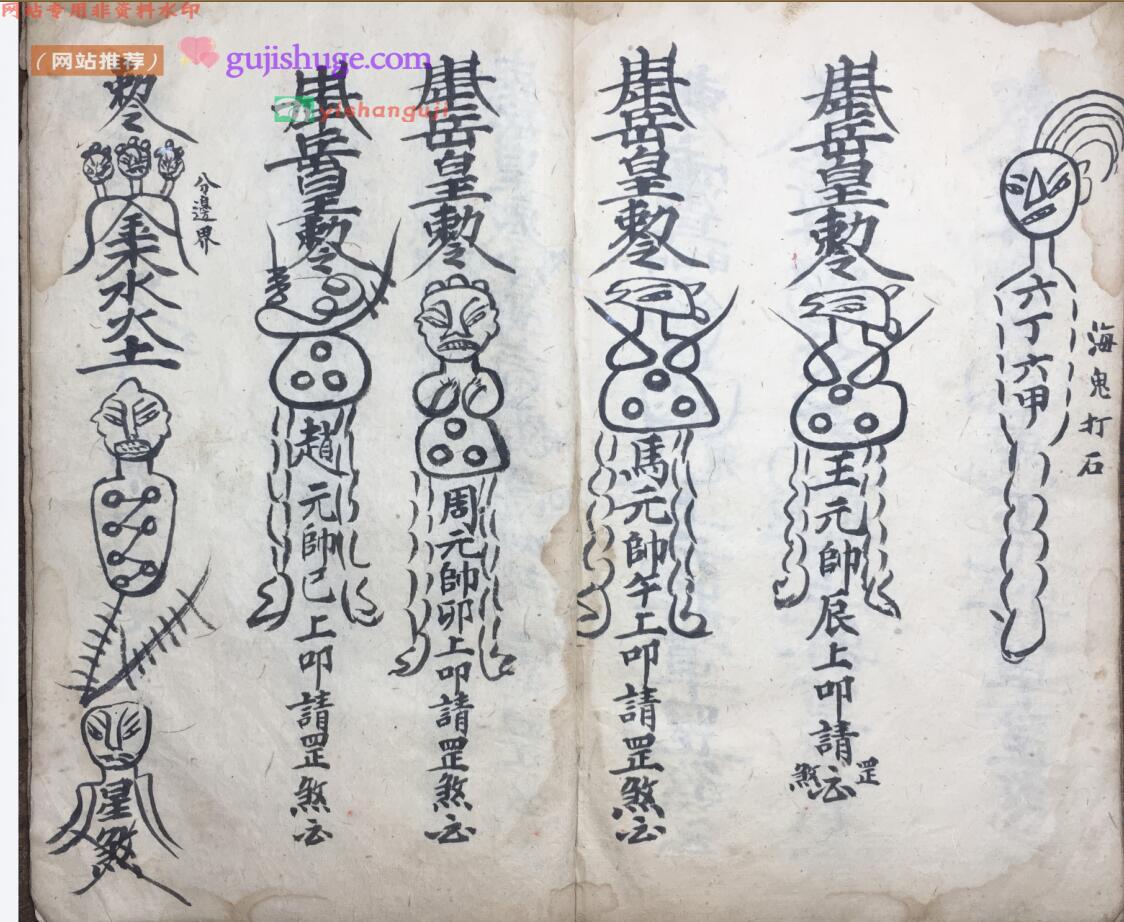 网站专用非资料水印
（网站推荐）
gujishuge.com
yishanguji
海鬼打石
六丁六甲
岳皇敕令
王元帥辰上叩請罡煞云
岳皇敕令
馬元帥午上叩請罡煞云
岳皇敕令
周元帥卯上叩請罡煞云
岳皇敕令
趙元帥巳上叩請罡煞云
分邊界
敕令
金木水火土
星煞